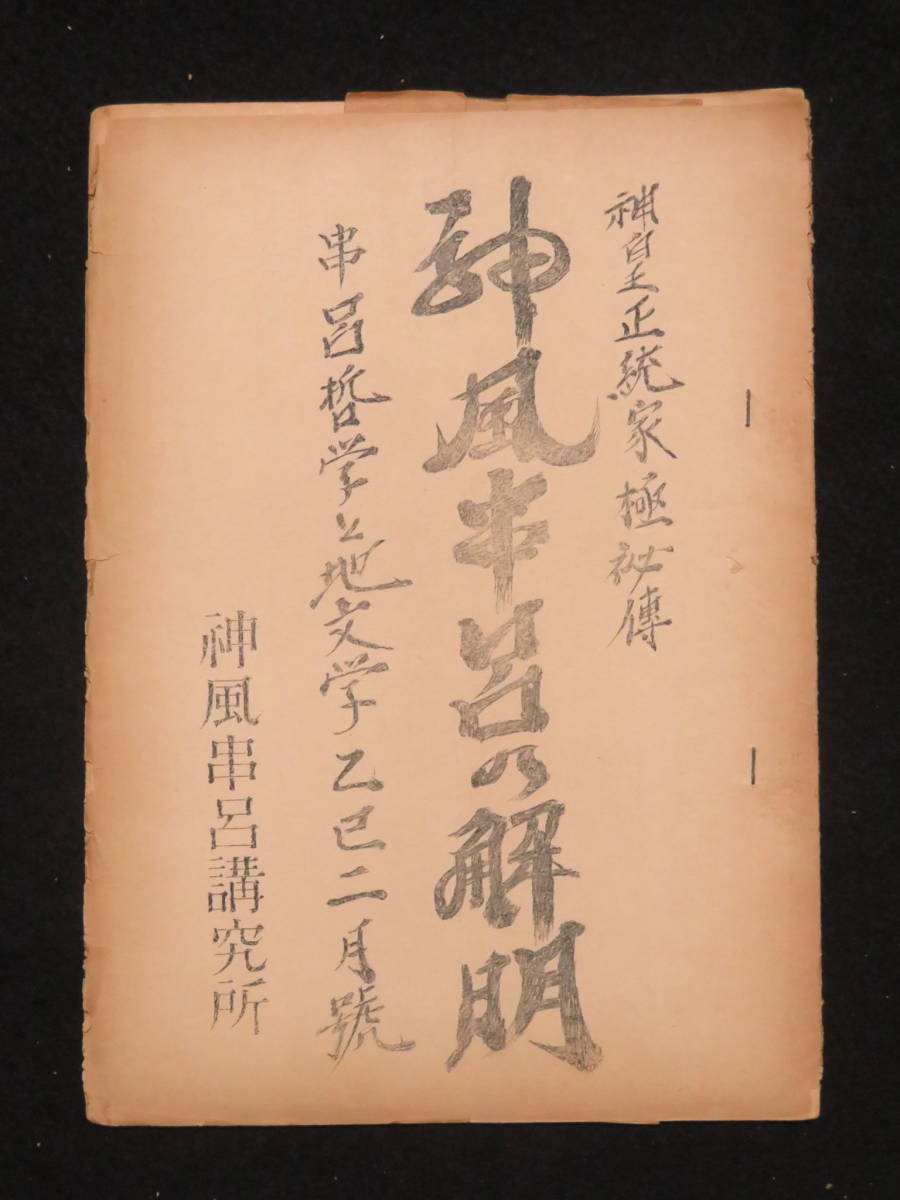 神皇正統家極祕傳
神風串呂の解明
串呂哲学と地文学乙巳二月號
神風串呂講究所